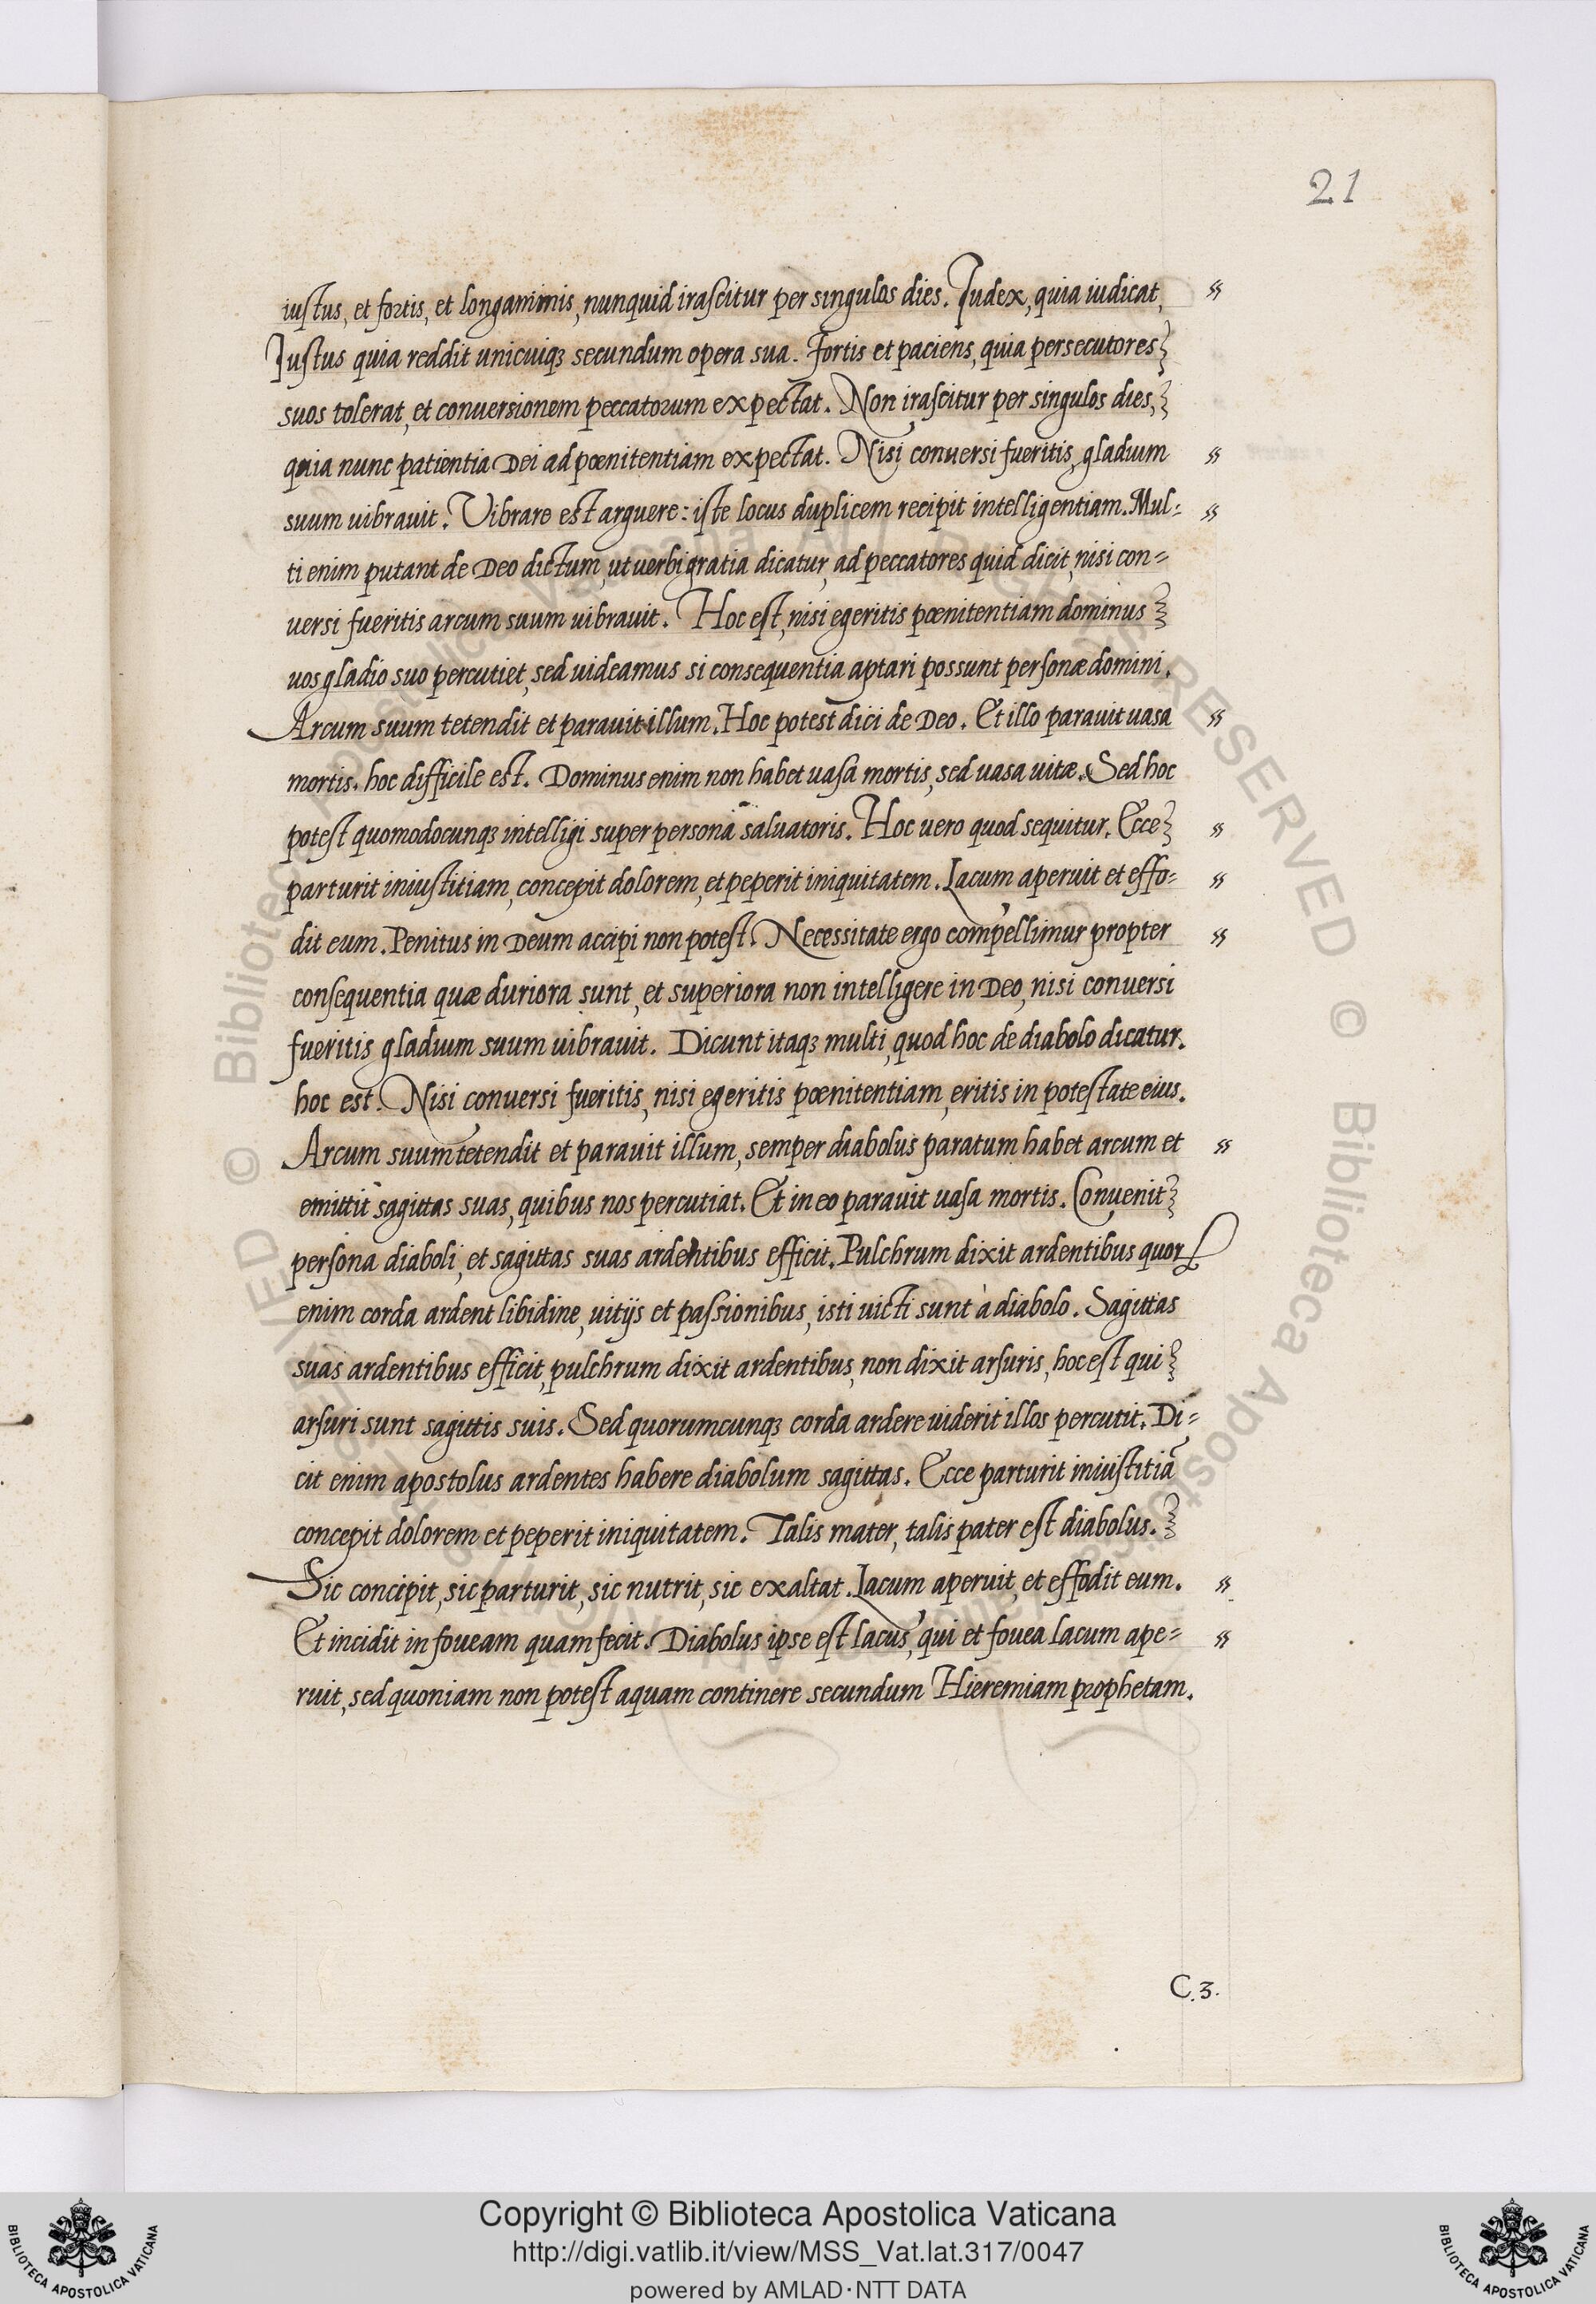 21
iustus, et fortis, et longanimis, nunquid irascitur per singulos dies. Iudex, quia iudicat,
Iustus quia reddit unicuiqꝫ secundum opera sua. Fortis et paciens, quia persecutores
suos tolerat, et conuersionem peccatorum expectat. Non irascitur per singulos dies,
quia nunc patientia Dei ad pœnitentiam expectat. Nisi conuersi fueritis, gladium
suum uibrauit. Vibrare est arguere: iste locus duplicem recipit intelligentiam. Mul=
ti enim putant de Deo dictum, ut uerbi gratia dicatur, ad peccatores quid dicit, nisi con=
uersi fueritis arcum suum uibrauit. Hoc est, nisi egeritis pœnitentiam dominus
uos gladio suo percutiet, sed uideamus si consequentia aptari possunt personæ domini.
Arcum suum tetendit et parauit illum. Hoc potest dici de Deo. Et illo parauit uasa
mortis. hoc difficile est. Dominus enim non habet uasa mortis, sed uasa uitæ. Sed hoc
potest quomodocunqꝫ intelligi super personā saluatoris. Hoc uero quod sequitur. Ecce
parturit iniustitiam, concepit dolorem, et peperit iniquitatem. Lacum aperuit et effo=
dit eum. Penitus in Deum accipi non potest. Necessitate ergo compellimur propter
consequentia quæ duriora sunt, et superiora non intelligere in Deo, nisi conuersi
fueritis gladium suum uibrauit. Dicunt itaqꝫ multi, quod hoc de diabolo dicatur.
hoc est. Nisi conuersi fueritis, nisi egeritis pœnitentiam, eritis in potestate eius.
Arcum suum tetendit et parauit illum, semper diabolus paratum habet arcum et
emittit sagittas suas, quibus nos percutiat. Et in eo parauit uasa mortis. Conuenit
persona diaboli, et sagittas suas ardentibus efficit. Pulchrum dixit ardentibus quorꝝ
enim corda ardent libidine, uitijs et passionibus, isti uicti sunt à diabolo. Sagittas
suas ardentibus efficit, pulchrum dixit ardentibus, non dixit arsuris, hoc est qui
arsuri sunt sagittis suis. Sed quorumcunqꝫ corda ardere uiderit illos percutit. Di=
cit enim apostolus ardentes habere diabolum sagittas. Ecce parturit iniustitiā
concepit dolorem et peperit iniquitatem. Talis mater, talis pater est diabolus.
Sic concipit, sic parturit, sic nutrit, sic exaltat. Lacum aperuit, et effodit eum.
Et incidit in foueam quam fecit. Diabolus ipse est lacus, qui et fouea lacum ape=
ruit, sed quoniam non potest aquam continere secundum Hieremiam prophetam.
C.3.
Copyright © Biblioteca Apostolica Vaticana
http://digi.vatlib.it/view/MSS_Vat.lat.317/0047
powered by AMLAD·NTT DATA
BIBLIOTECA APOSTOLICA VATICANA
BIBLIOTECA APOSTOLICA VATICANA